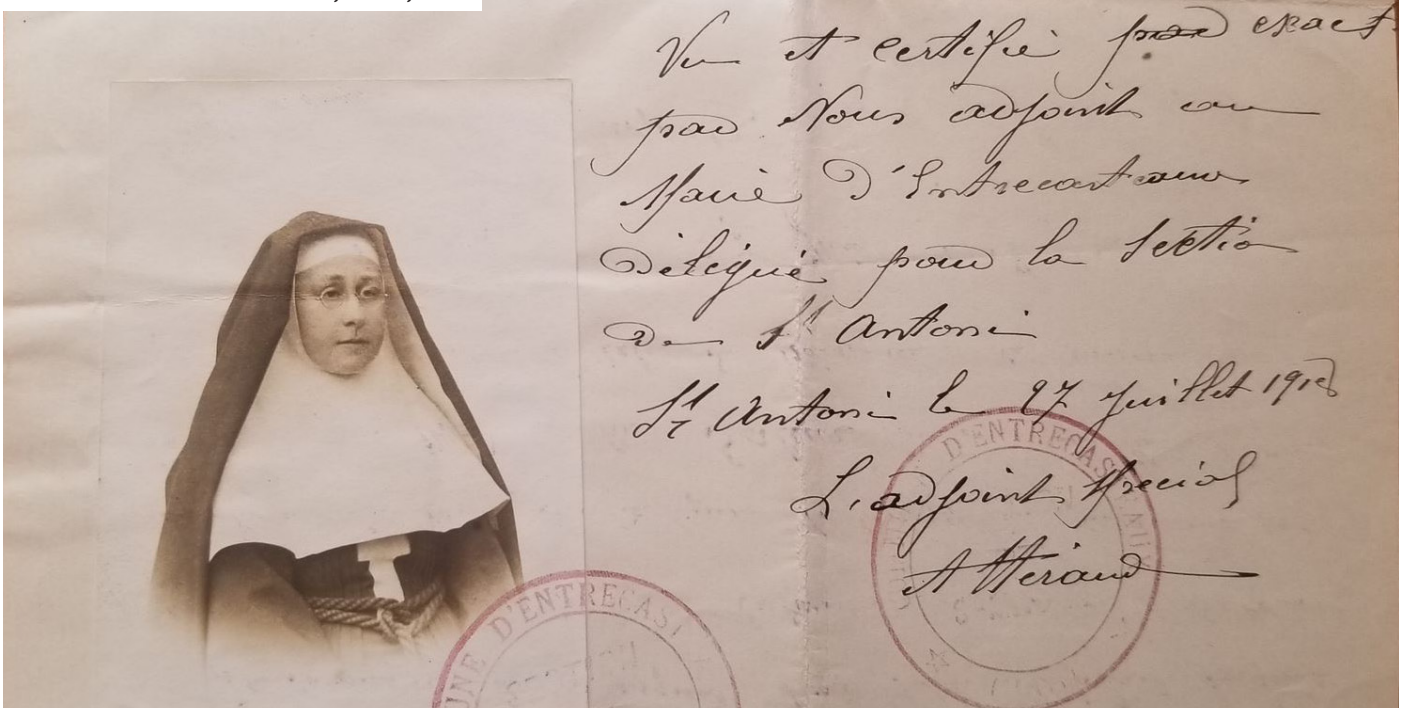 Vu et certifié pour exact
par Nous adjoint au
Maire d'Entrecasteaux
Délégué pour la Section
De St Antonin
St Antonin le 27 Juillet 1918
L'adjoint Spécial
A Héraud
D'ENTRECAST
UNE D'ENTRECAST